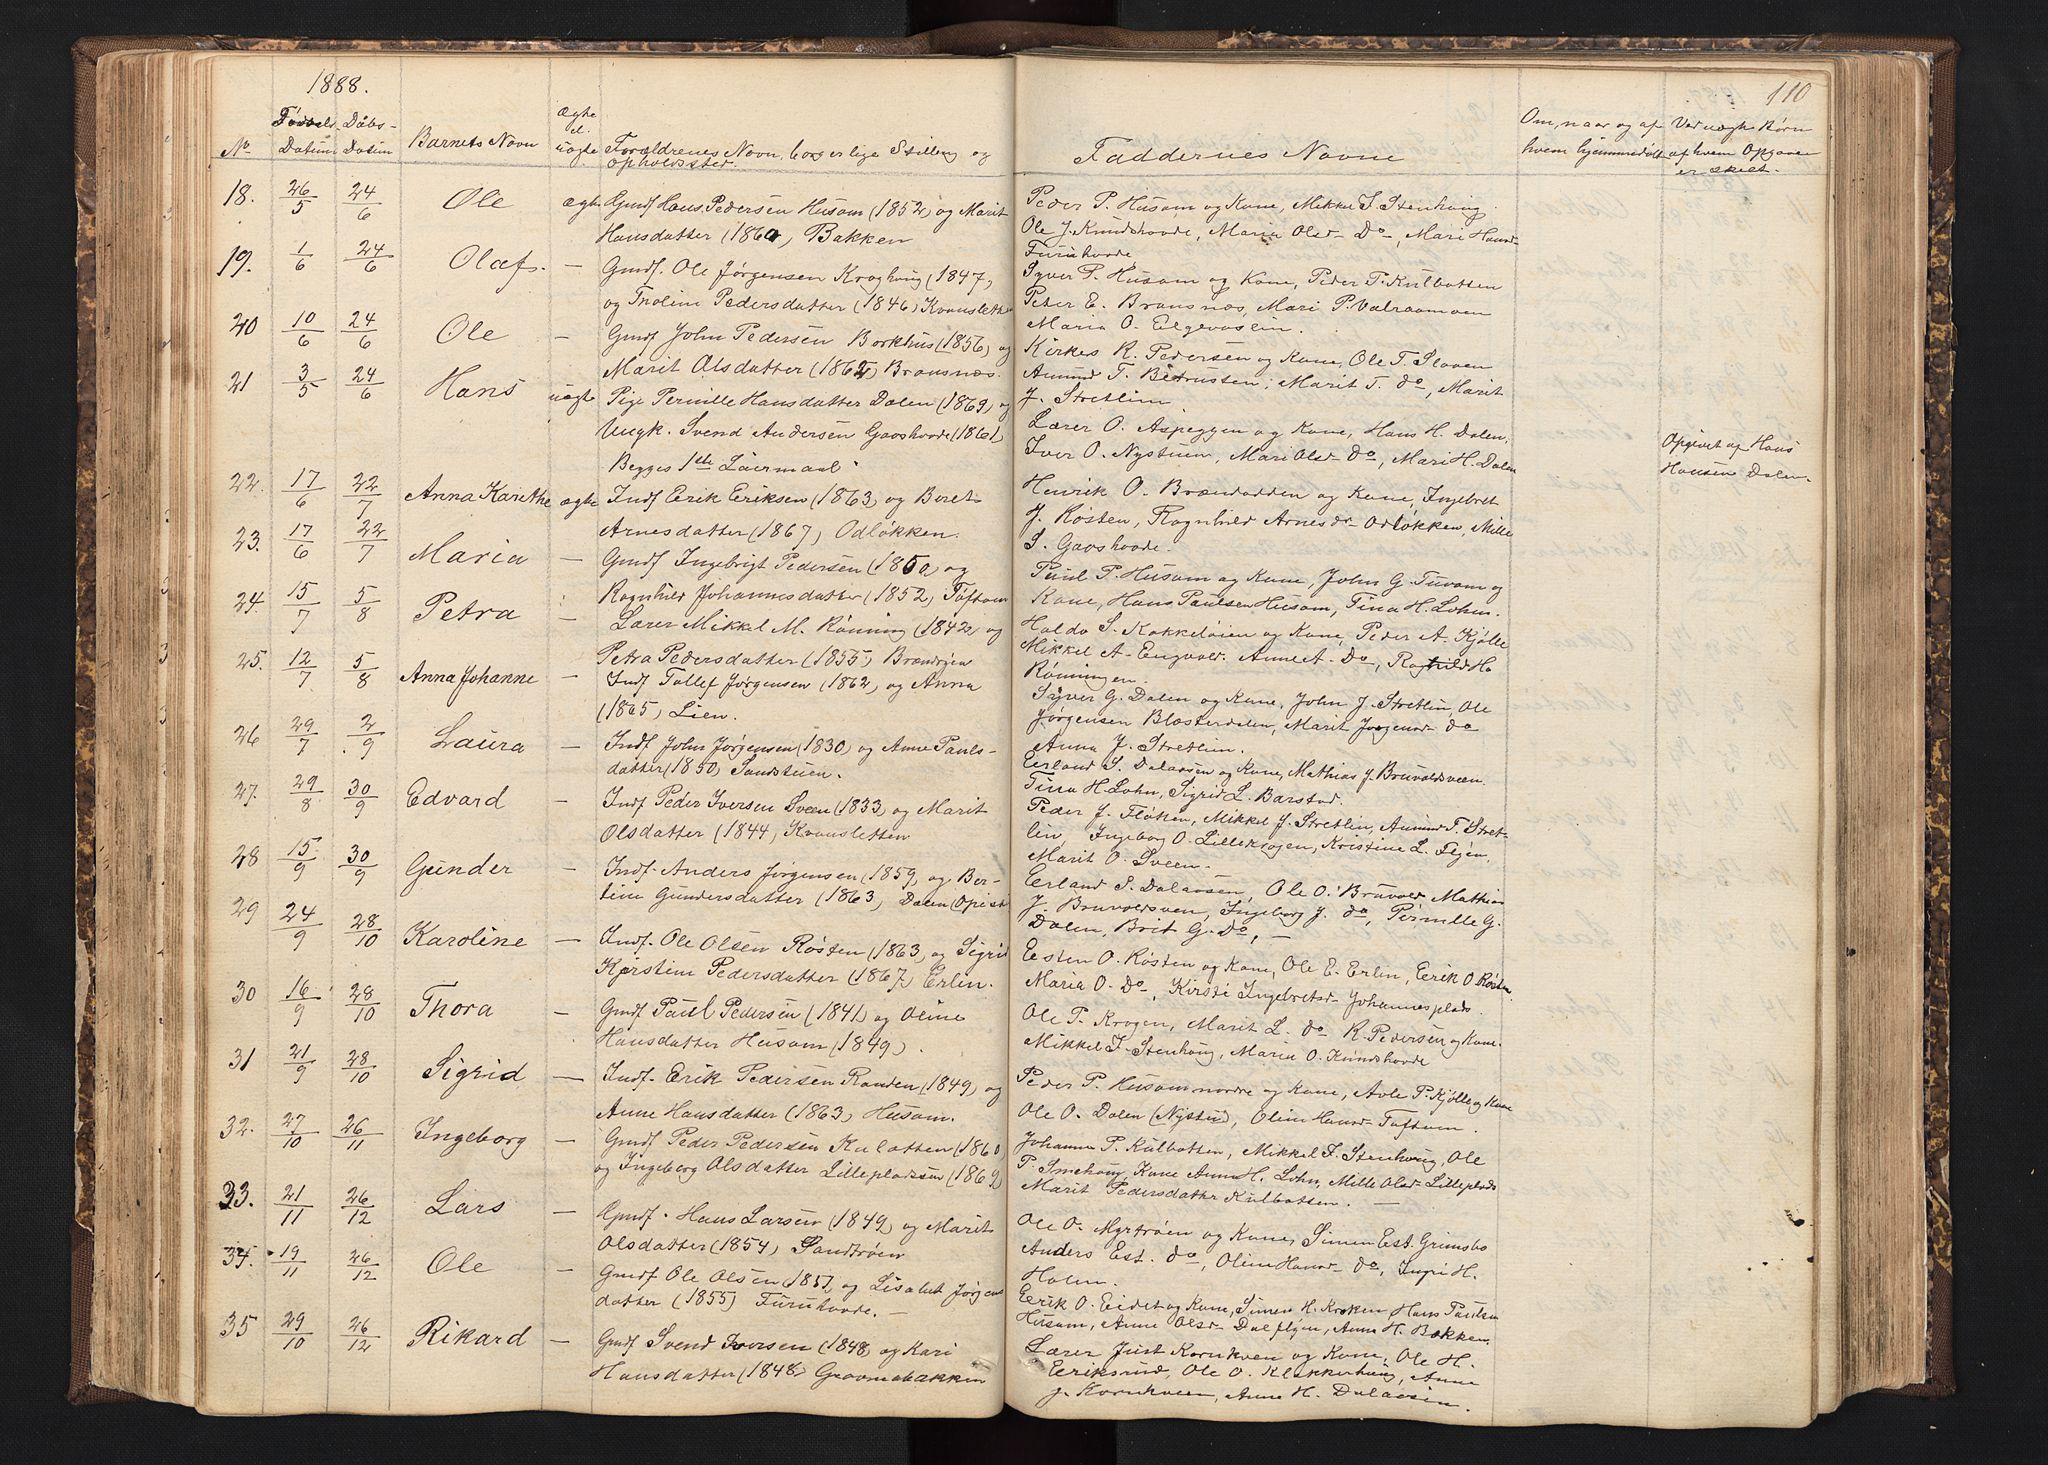 1888.
110
No
Fødsels Datum
Daabs-Datum
Barnets Navn
Ægte el. uægte
Forældrenes Navn, borgerlige Stilling og opholdssted
Faddernes Navne
Om, naar og af hvem hjemmedøbt
Ved uægte Børn af hvem Opgaven er skeet.
18. 26/5 24/6 Ole ægte Gmdf Hans Pedersen Husom (1852) og Marit
Hansdatter (1860) Bakken
19. 1/6 24/6 Olaf. — Gmdf. Ole Jørgensen Kroghaug (1847)
og Tholine Pedersdatter (1846) Kvansletten
20 10/6 24/6 Ole — Gmdf John Pedersen Borkhus (1856) og
Marit Olsdatter (1862) Bransnæs.
21 3/5 24/6 Hans uægte Pige Pernille Hansdatter Dalen (1869) og
Ungk. Svend Andersen Gaashovde (1861)
Begges 1ste Leiermaal
22. 17/6 22/7 Anna Karethe ægte Indf Erik Eriksen (1863) og Beret
Arnesdatter (1867) Odløkken.
23. 17/6 22/7 Maria — Gmdf Ingebrigt Pedersen (1850) og
Ragnhild Johannesdatter (1852) Toftom
24. 15/7 5/8 Petra — Lærer Mikkel M. Rønning (1842) og
Petra Pedersdatter (1855) Brændvjen
25. 12/7 5/8 Anna Johanne — Indf Tollef Jørgensen (1862) og Anna
(1865) Lien.
26 29/7 2/9 Laura — Indf John Jørgensen (1830) og Anne Pauls-
datter (1850) Sandstuen.
27. 29/8 30/9 Edvard — Indf Peder Iversen Sveen (1833) og Marit
Olsdatter (1844) Kvansletten
28 15/9 30/9 Gunder — Indf. Anders Jørgensen (1859) og Ber-
tine Gundersdatter (1863) Dalen (Opist
29 24/9 28/10 Karoline — Indf. Ole Olsen Røsten (1863) og Sigrid
Kjerstine Pedersdatter (1867) Erlin.
30 16/9 28/10 Thora — Gmdf Paul Pedersen (1841) og Oline
Hansdatter Husom (1849).
31 21/9 28/10 Sigrid — Indf. Erik Pedersen Randen (1849) og
Anne Hansdatter (1863) Husom.
32. 27/10 26/11 Ingeborg — Gmdf Peder Pedersen Kulbotten (1860)
og Ingeborg Olsdatter Lilleplassen (1862)
33. 21/11 26/12 Lars — Gmdf. Hans Larsen (1849) og Marit
Olsdatter (1854) Sandtrøen
34. 19/11 26/12 Ole — Gmdf Ole Olsen (1851) og Lisabet Jørgens
datter (1855) Furuhovde. —
35 29/10 26/12 Rikard — Gmdf Svend Iversen (1848) og Kari
Hansdatter (1848) Grovnebakken
Peder P. Husom og Kone, Mikkel J. Stenhaug
Ole J. Kundshovde, Maria Olsd- Do-, Mari Hansd-
Furuhovde
Syver P. Husom og Kone, Peder T. Kulbotten
Peter E. Bransnæs, Mari P. Valraamoen
Maria O. Elgevaslien.
Kirkes. R. Pedersen og Kone, Ole T. Sloven
Amund T. Betrusten, Marit T. do, Marit
J. Stretlim
Lærer O. Aspeggen og Kone, Hans H. Dalen,
Iver O. Nystuen, Mari Olsd- Do-, Mari H. Dalen
Opgivet af Hans
Hansen Dalen.
Henrik O. Brændodden og Kone, Ingebret
J. Røsten, Ragnhild Arnesdr- Odløkken, Mille
S. Gaashovde.
Paul P. Husom og Kone, John G. Turom og
Kone, Hans Paulsen Husom, Tina H. Lohn.
Haldo S. Kokkeløien og Kone, Peder A. Kjølle
Mikkel A- Engvold. Anne A- Do, Ragnhild H.
Rønningen.
Syver G. Dalen og Kone, John J. Stretlin, Ole
Jørgensen Blæsterdalen, Marit Jørgensd- do
Anna J. Stretlien.
Erland S. Dalaasen og Kone, Mathias J. Bruvoldsveen.
Tina H. Lohn, Sigrid L. Barstad.
Peder J. Fløtten, Mikkel J. Stretlin, Amund T. Stret-
lin, Ingeborg O. Lillekrogen, Kristine L. Fløen,
Marit O. Sveen.
Erland S. Dalaasen, Ole O. Bruvold, Mathias
J. Bruvoldsveen, Ingeborg J. do, Pernille G.
Dalen, Brit G. Do, —
Esten O. Røsten og Kone, Ole E. Erlin, Erik O Røsten
Maria O. Do, Kirsti Ingebretsd- Johannesplads.
Ole P. Krogen, Marit L. do R. Pedersen og Kone.
Mikkel J. Stenhaug, Maria O. Kundshovde
Peder P. Husom nordre og Kone, Avle P. Kjølle og Kone
Ole O. Dalen (Nystud), Olin Hansd- Toftom.
Johanne P. Kulbotten, Mikkel J. Stenhaug, Ole
P. Smehaug, Kone Anne H. Lohn, Mille Olsd- Lilleplads
Marit Pedersdatter Kulbotten. —
Ole O. Myrtrøen og Kone, Simen Est. Grimsbo
Anders Est. do, Olin Hansd- do, Ingri H.
Holen.
Erik O. Eidet og Kone, Simen H. Kroken, Hans Paulsen
Husom, Anne Olsd- Dalflyen, Anne H. Bakken.
Lærer Just Kornkveen og Kone, Ole H.
Eriksrud, Ole O. Klokkerhaug, Anne
J. Kornkveen, Anne H. Dalaasen.